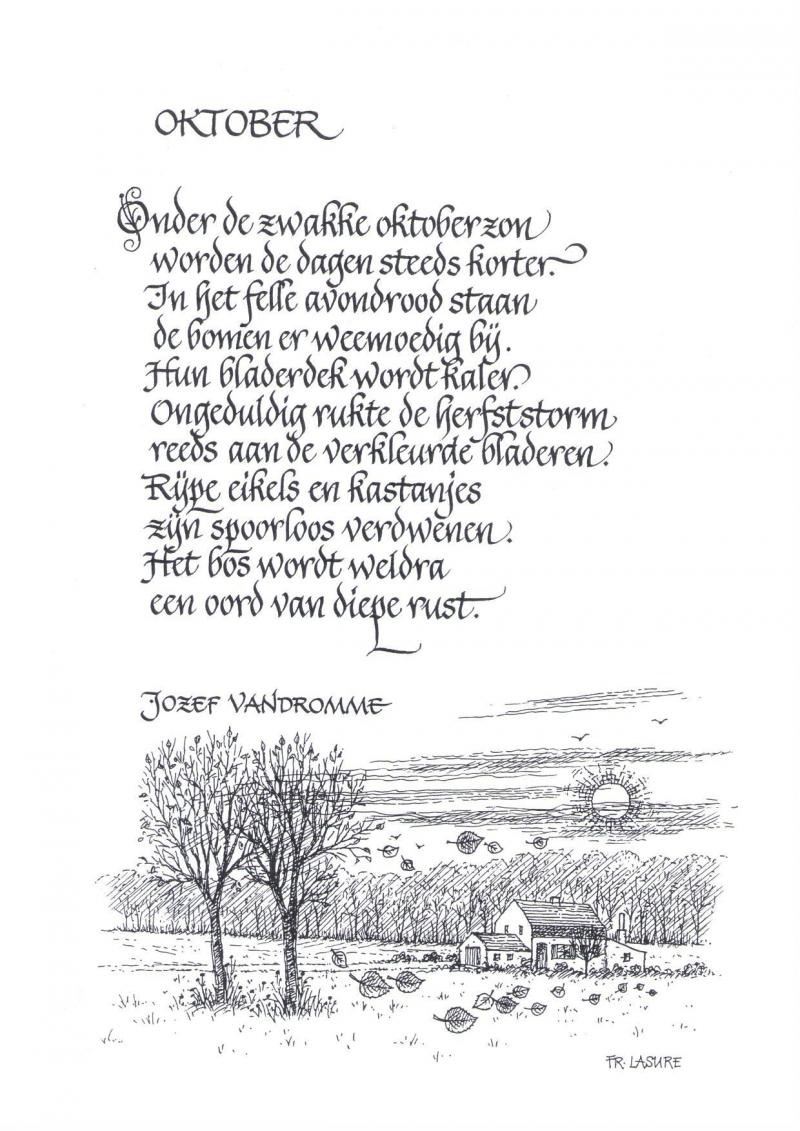 OKTOBER
Onder de zwakke oktoberzon
worden de dagen steeds korter.
In het felle avondrood staan
de bomen er weemoedig bij.
Hun bladerdek wordt kaler.
Ongeduldig rukte de herfststorm
reeds aan de verkleurde bladeren.
Rijpe eikels en kastanjes
zijn spoorloos verdwenen.
Het bos wordt weldra
een oord van diepe rust.
JOZEF VANDROMME
FR. LASURE